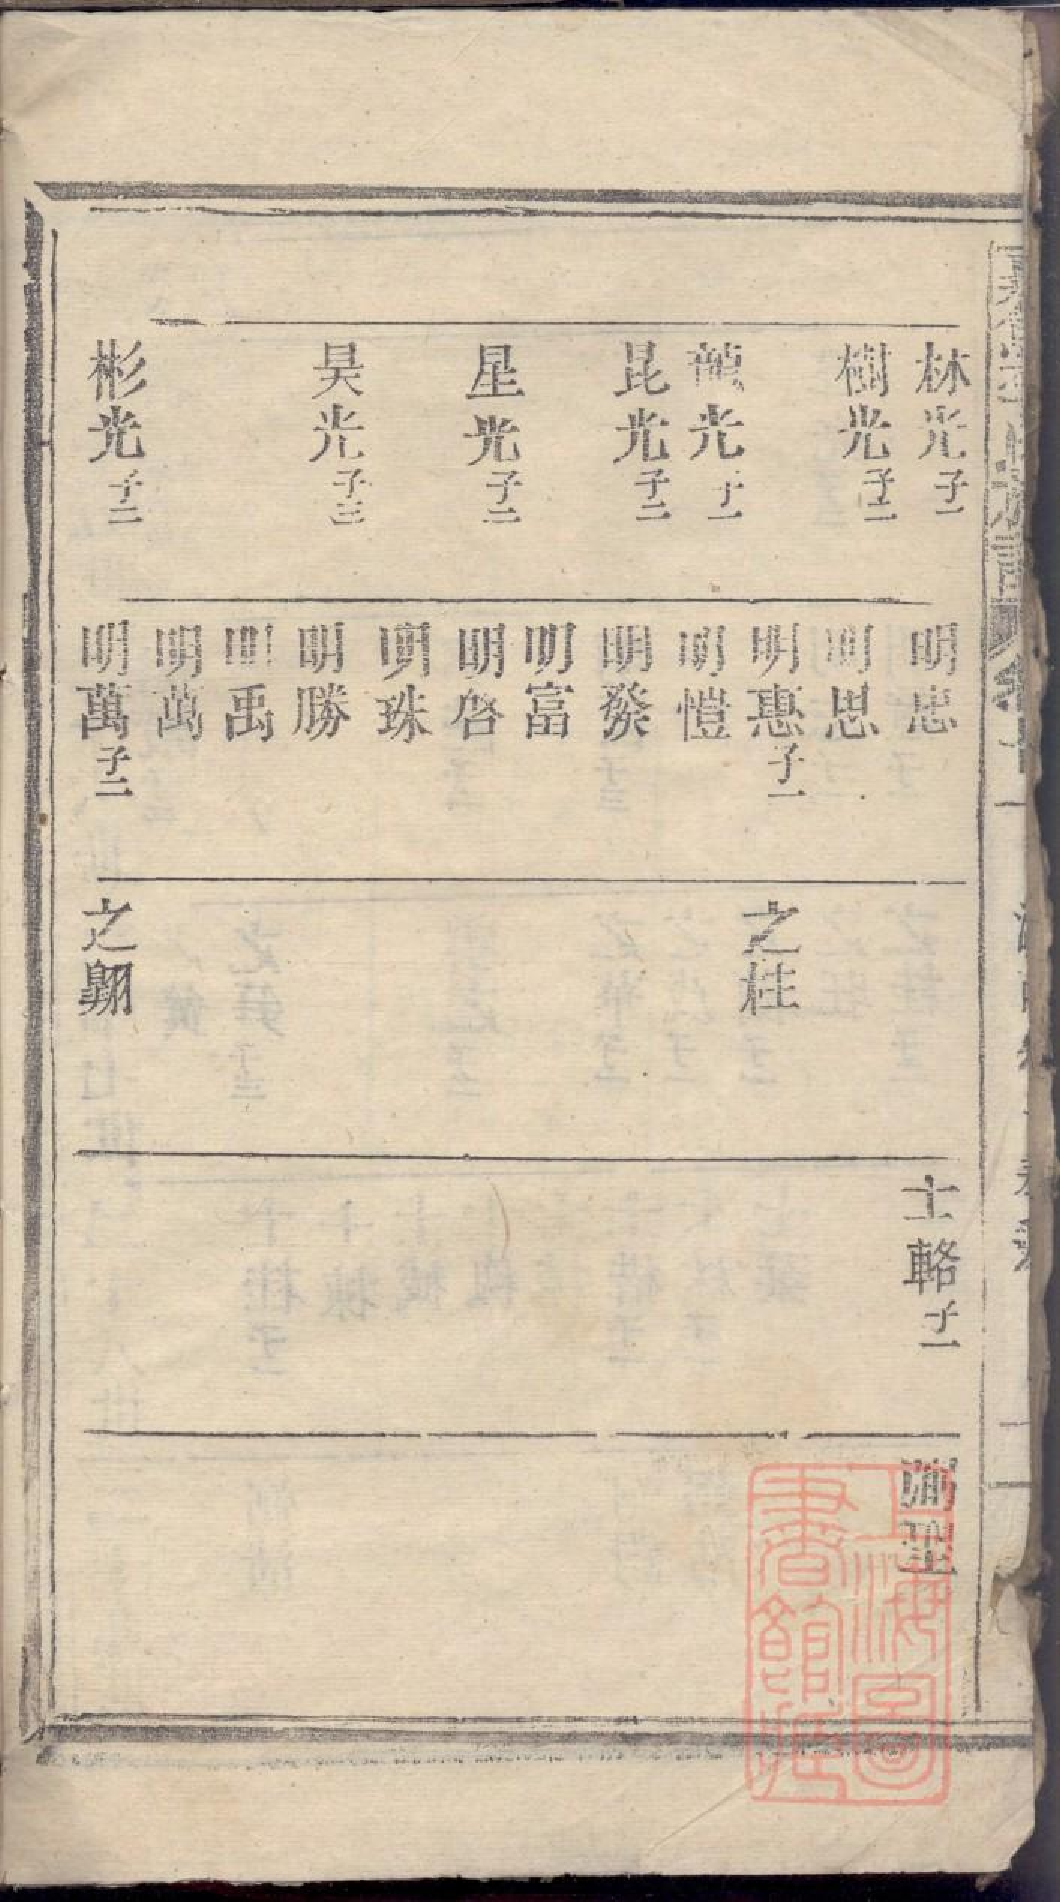 林光子一
樹光子二
龍光子一
昆光子二
星光子二
昊光子三
彬光子二
明忠
明思
明惠子一
明愷
明發
明富
明啓
明珠
明勝
明禹
明萬
明萬子二
之桂
之翱
士輅子一
弼聖
上海圖
書館藏